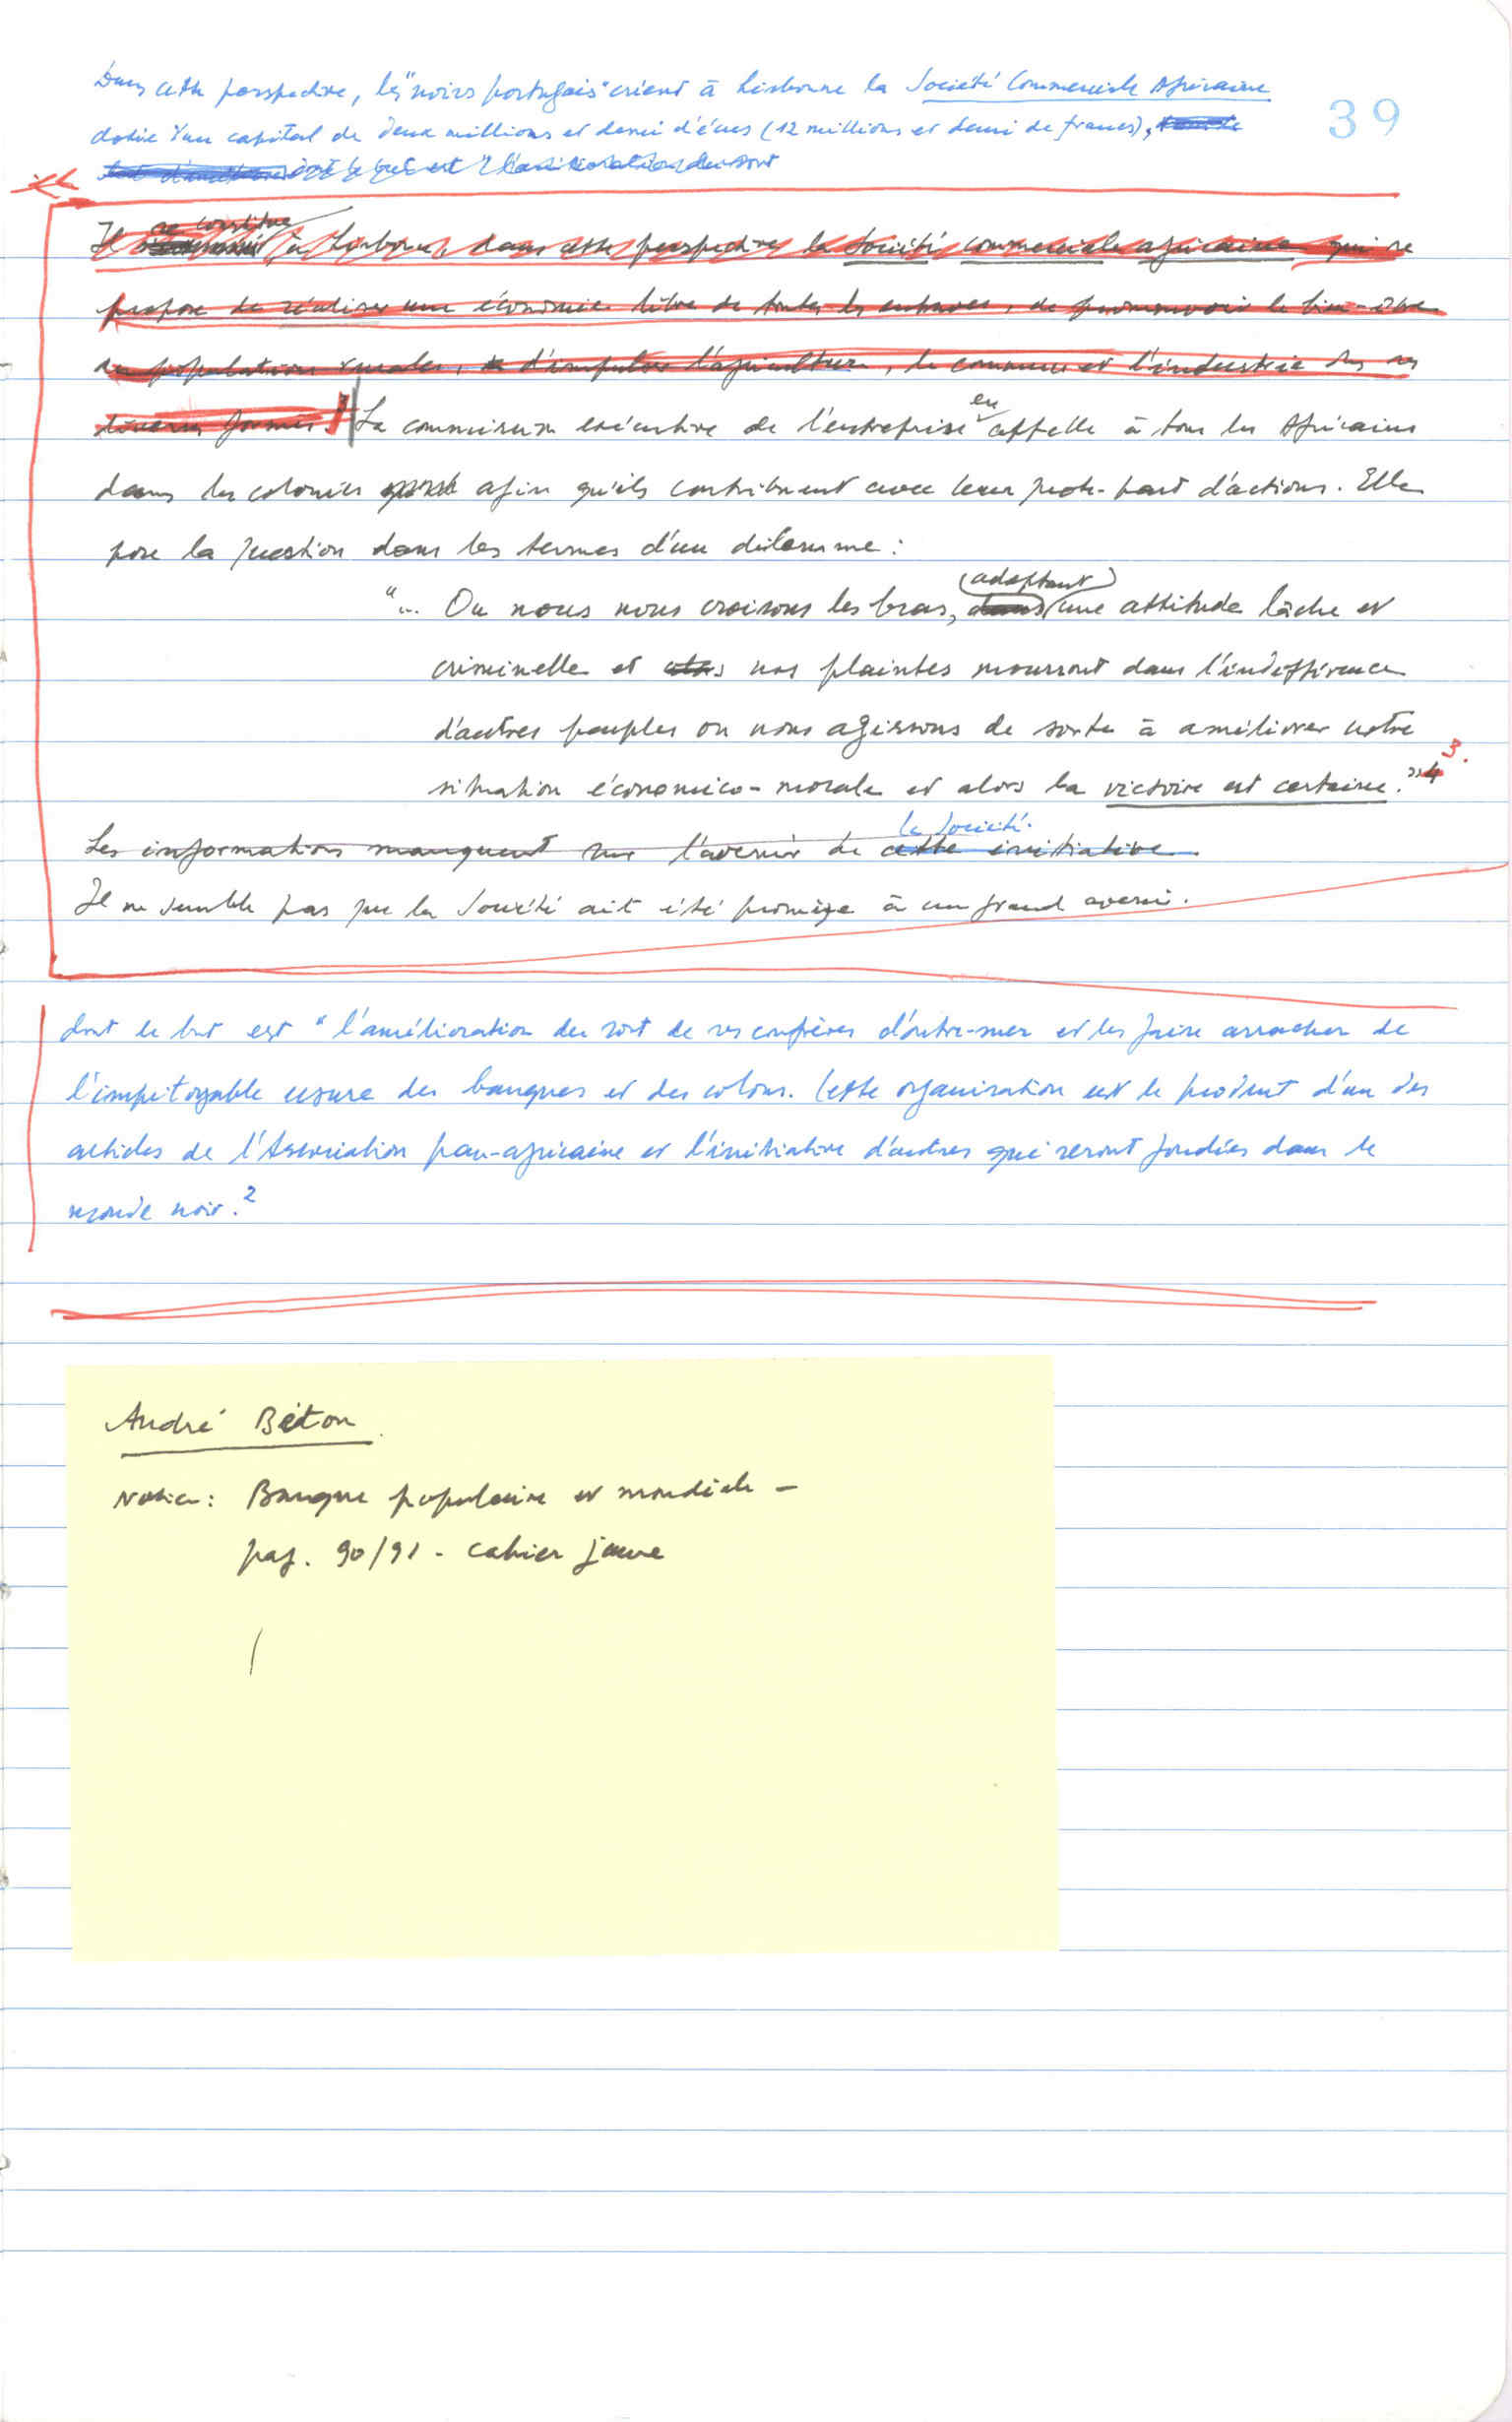 39
Dans cette perspective, les "noirs portugais" créent à Lisbonne la Société Commerciale Africaine
dotée d'un capital de deux millions et demi d'écus (12 millions et demi de francs),
Il se constitue à Lisbonne, dans cette perspective, la Société commerciale africaine qui se
propose de réaliser une économie libre de toutes les entraves, de promouvoir le bien-être
des populations rurales, d'impulser l'agriculture, le commerce et l'industrie sous ses
diverses formes. 3 La commission exécutive de l'entreprise en appelle à tous les Africains
dans les colonies afin qu'ils contribuent avec leur quote-part d'actions. Elle
pose la question dans les termes d'un dilemme :
"... Ou nous nous croisons les bras, dans (adoptant) une attitude lâche et
criminelle et alors nos plaintes mourront dans l'indifférence
d'autres peuples ou nous agissons de sorte à améliorer notre
situation économico-morale et alors la victoire est certaine." 4 3.
Les informations manquent sur l'avenir de cette initiative la Société.
Il ne semble pas que la Société ait été promise à un grand avenir.
dont le but est "l'amélioration du sort de ses confrères d'outre-mer et les faire arracher de
l'impitoyable usure des banques et des colons. Cette organisation est le produit d'un des
articles de l'Association pan-africaine et l'initiative d'autres qui seront fondées dans le
monde noir. 2
André Béton
Notice : Banque populaire et mondiale -
pag. 90/91 - cahier jaune